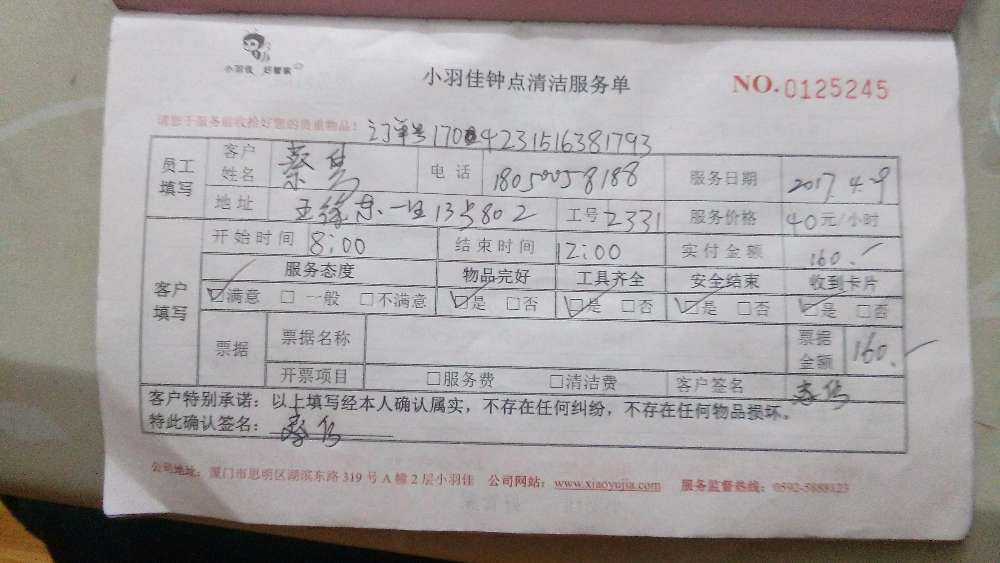 小羽佳 好管家
小羽佳钟点清洁服务单
NO. 0125245
请您于服务前收拾好您的贵重物品!
订单号170423151638 1793
员工填写 客户姓名 蔡 电话 18050058188 服务日期 2017.4.9
地址 135802 工号 2331 服务价格 40元/小时
开始时间 8:00 结束时间 12:00 实付金额 160.
客户填写 服务态度 物品完好 工具齐全 安全结束 收到卡片
☑满意 □一般 □不满意 ☑是 □否 ☑是 □否 ☑是 □否 ☑是 □否
票据 票据名称 票据金额 160.
开票项目 □服务费 □清洁费 客户签名
客户特别承诺：以上填写经本人确认属实，不存在任何纠纷，不存在任何物品损坏。
特此确认签名：
公司地址：厦门市思明区湖滨东路319号A幢2层小羽佳 公司网站：www.xiaoyujia.com 服务监督热线：0592-5888123